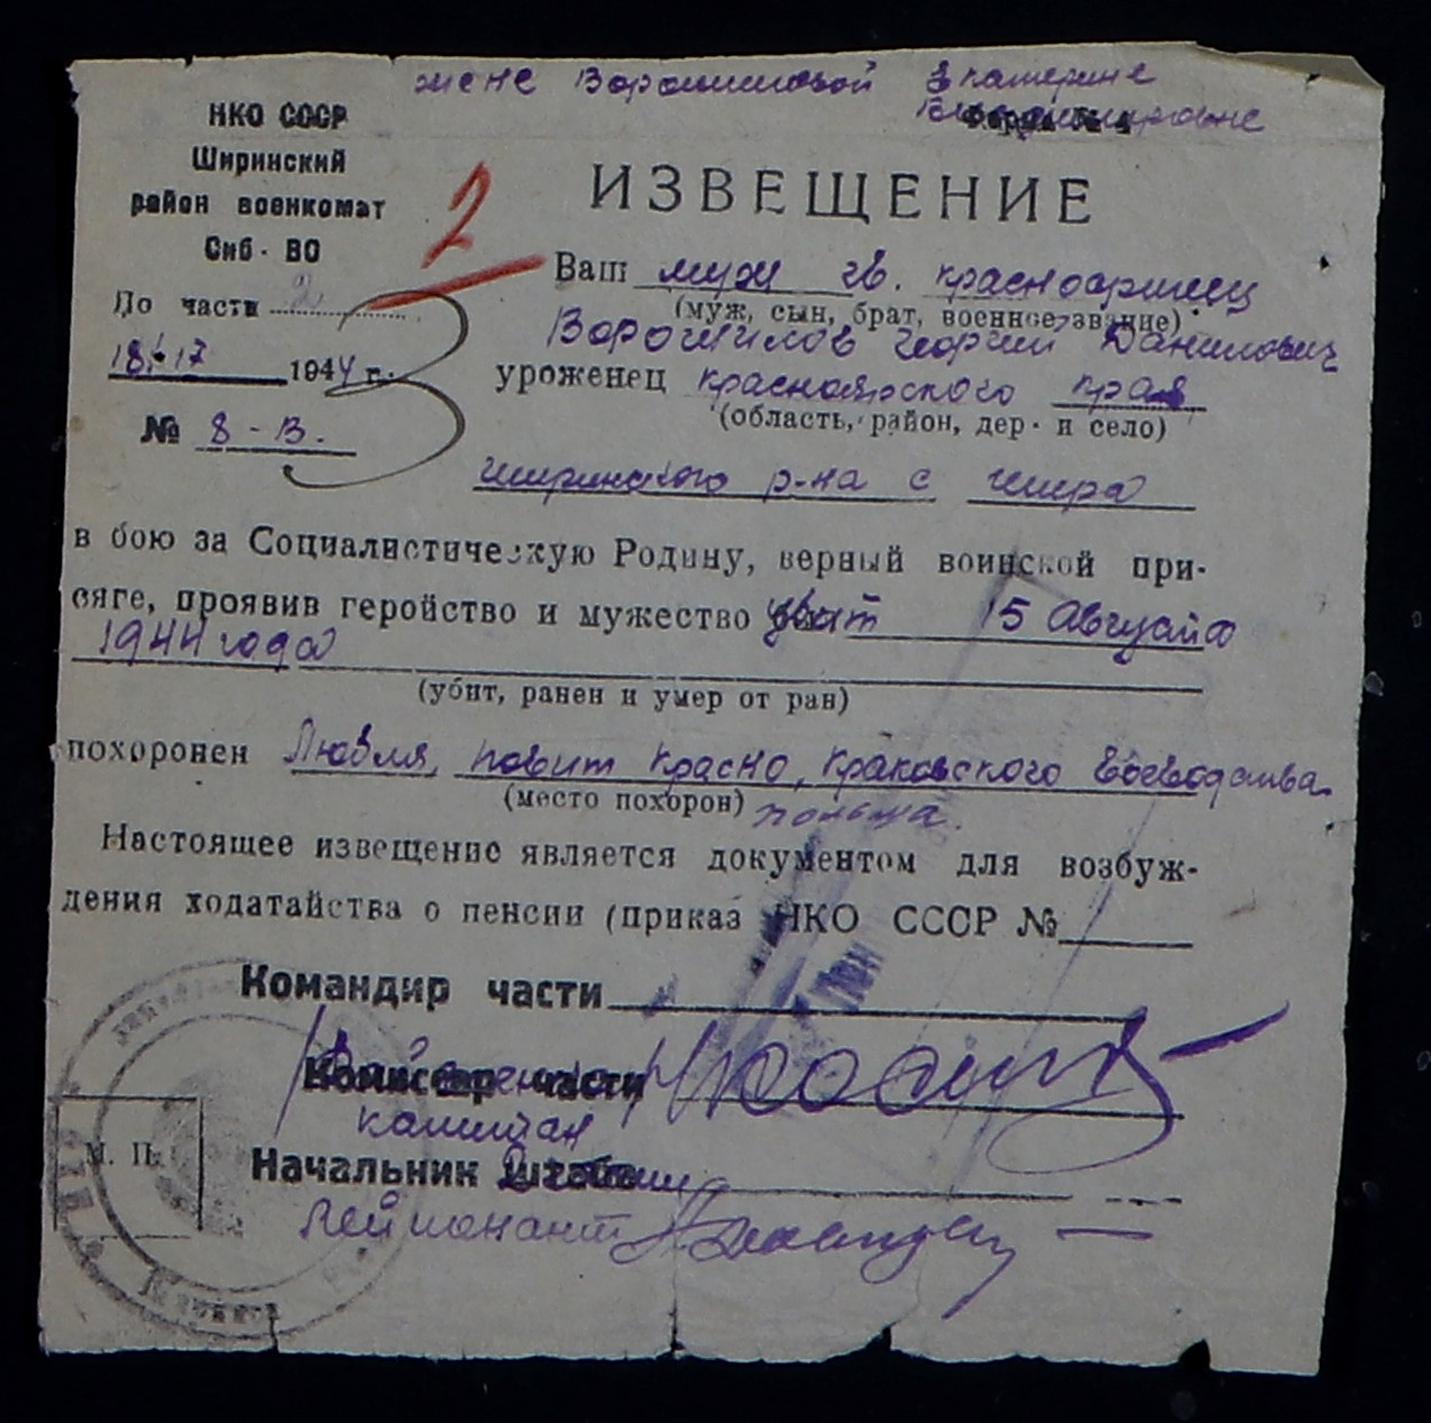 жене Ворошиловой Екатерине
НКО СССР
Ширинский
район военкомат
Сиб. ВО
По части 2
1944 г.
№ 8-В.
2
ИЗВЕЩЕНИЕ
Ваш муж гв. красноармеец
(муж, сын, брат, военное звание)
Ворошилов Георгий Данилович
уроженец Красноярского края
(область, район, дер. и село)
Ширинского р-на с Шира
в бою за Социалистическую Родину, верный воинской при-
сяге, проявив геройство и мужество убит 15 Августа
1944 года
(убит, ранен и умер от ран)
похоронен Любля, повит Красно, Краковского Воеводства
(место похорон) Польша.
Настоящее извещение является документом для возбуж-
дения ходатайства о пенсии (приказ НКО СССР №
Командир части
Комиссар части
капитан
Начальник штаба
М. П.
лейтенант